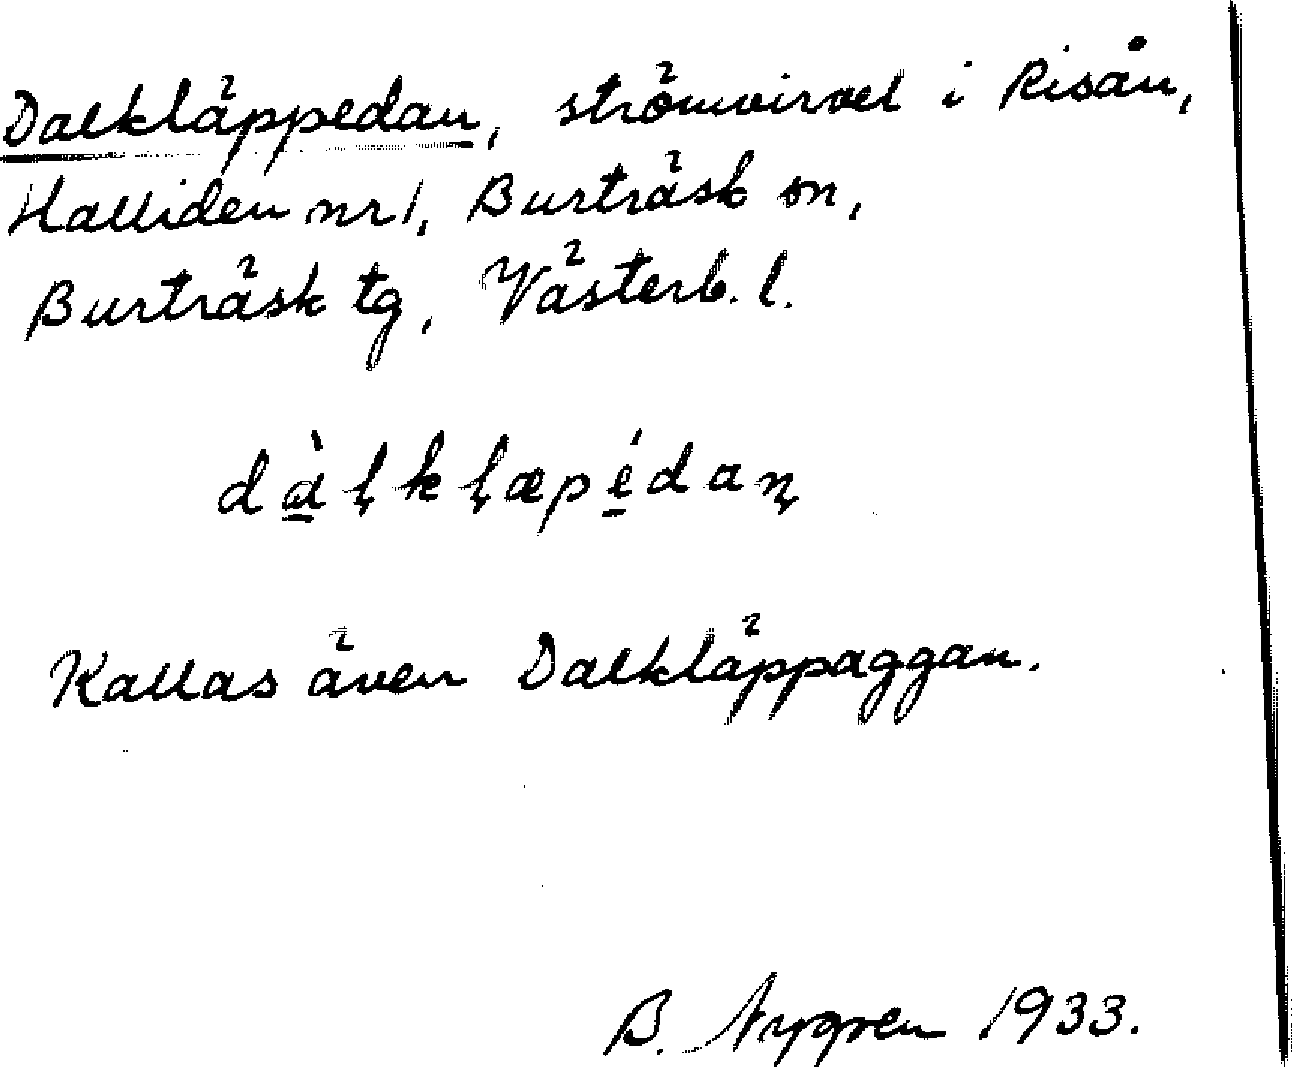 Dalkläppedan, strömvirvel i Risån,
Halliden nr 1, Burträsk sn,
Burträsk tg, Västerb. l.
dàḷkḷæpédaṇ
Kallas även Dalkläppaggan.
B. Nygren 1933.